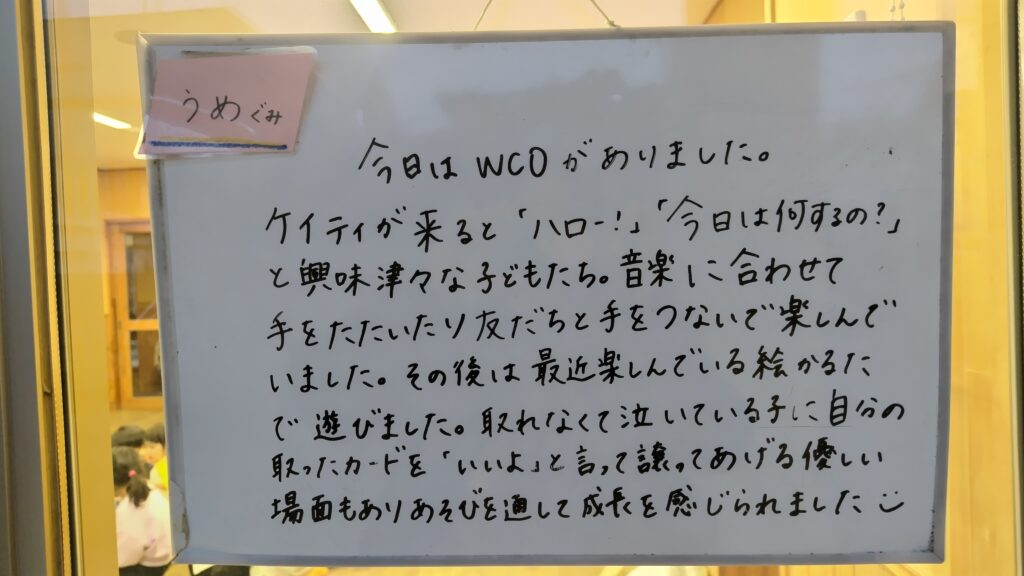 うめぐみ
今日はWCOがありました。
ケイティが来ると「ハロー!」「今日は何するの?」
と興味津々な子どもたち。音楽に合わせて
手をたたいたり友だちと手をつないで楽しんで
いました。その後は最近楽しんでいる絵かるた
で遊びました。取れなくて泣いている子に自分の
取ったカードを「いいよ」と言って譲ってあげる優しい
場面もありあそびを通して成長を感じられました